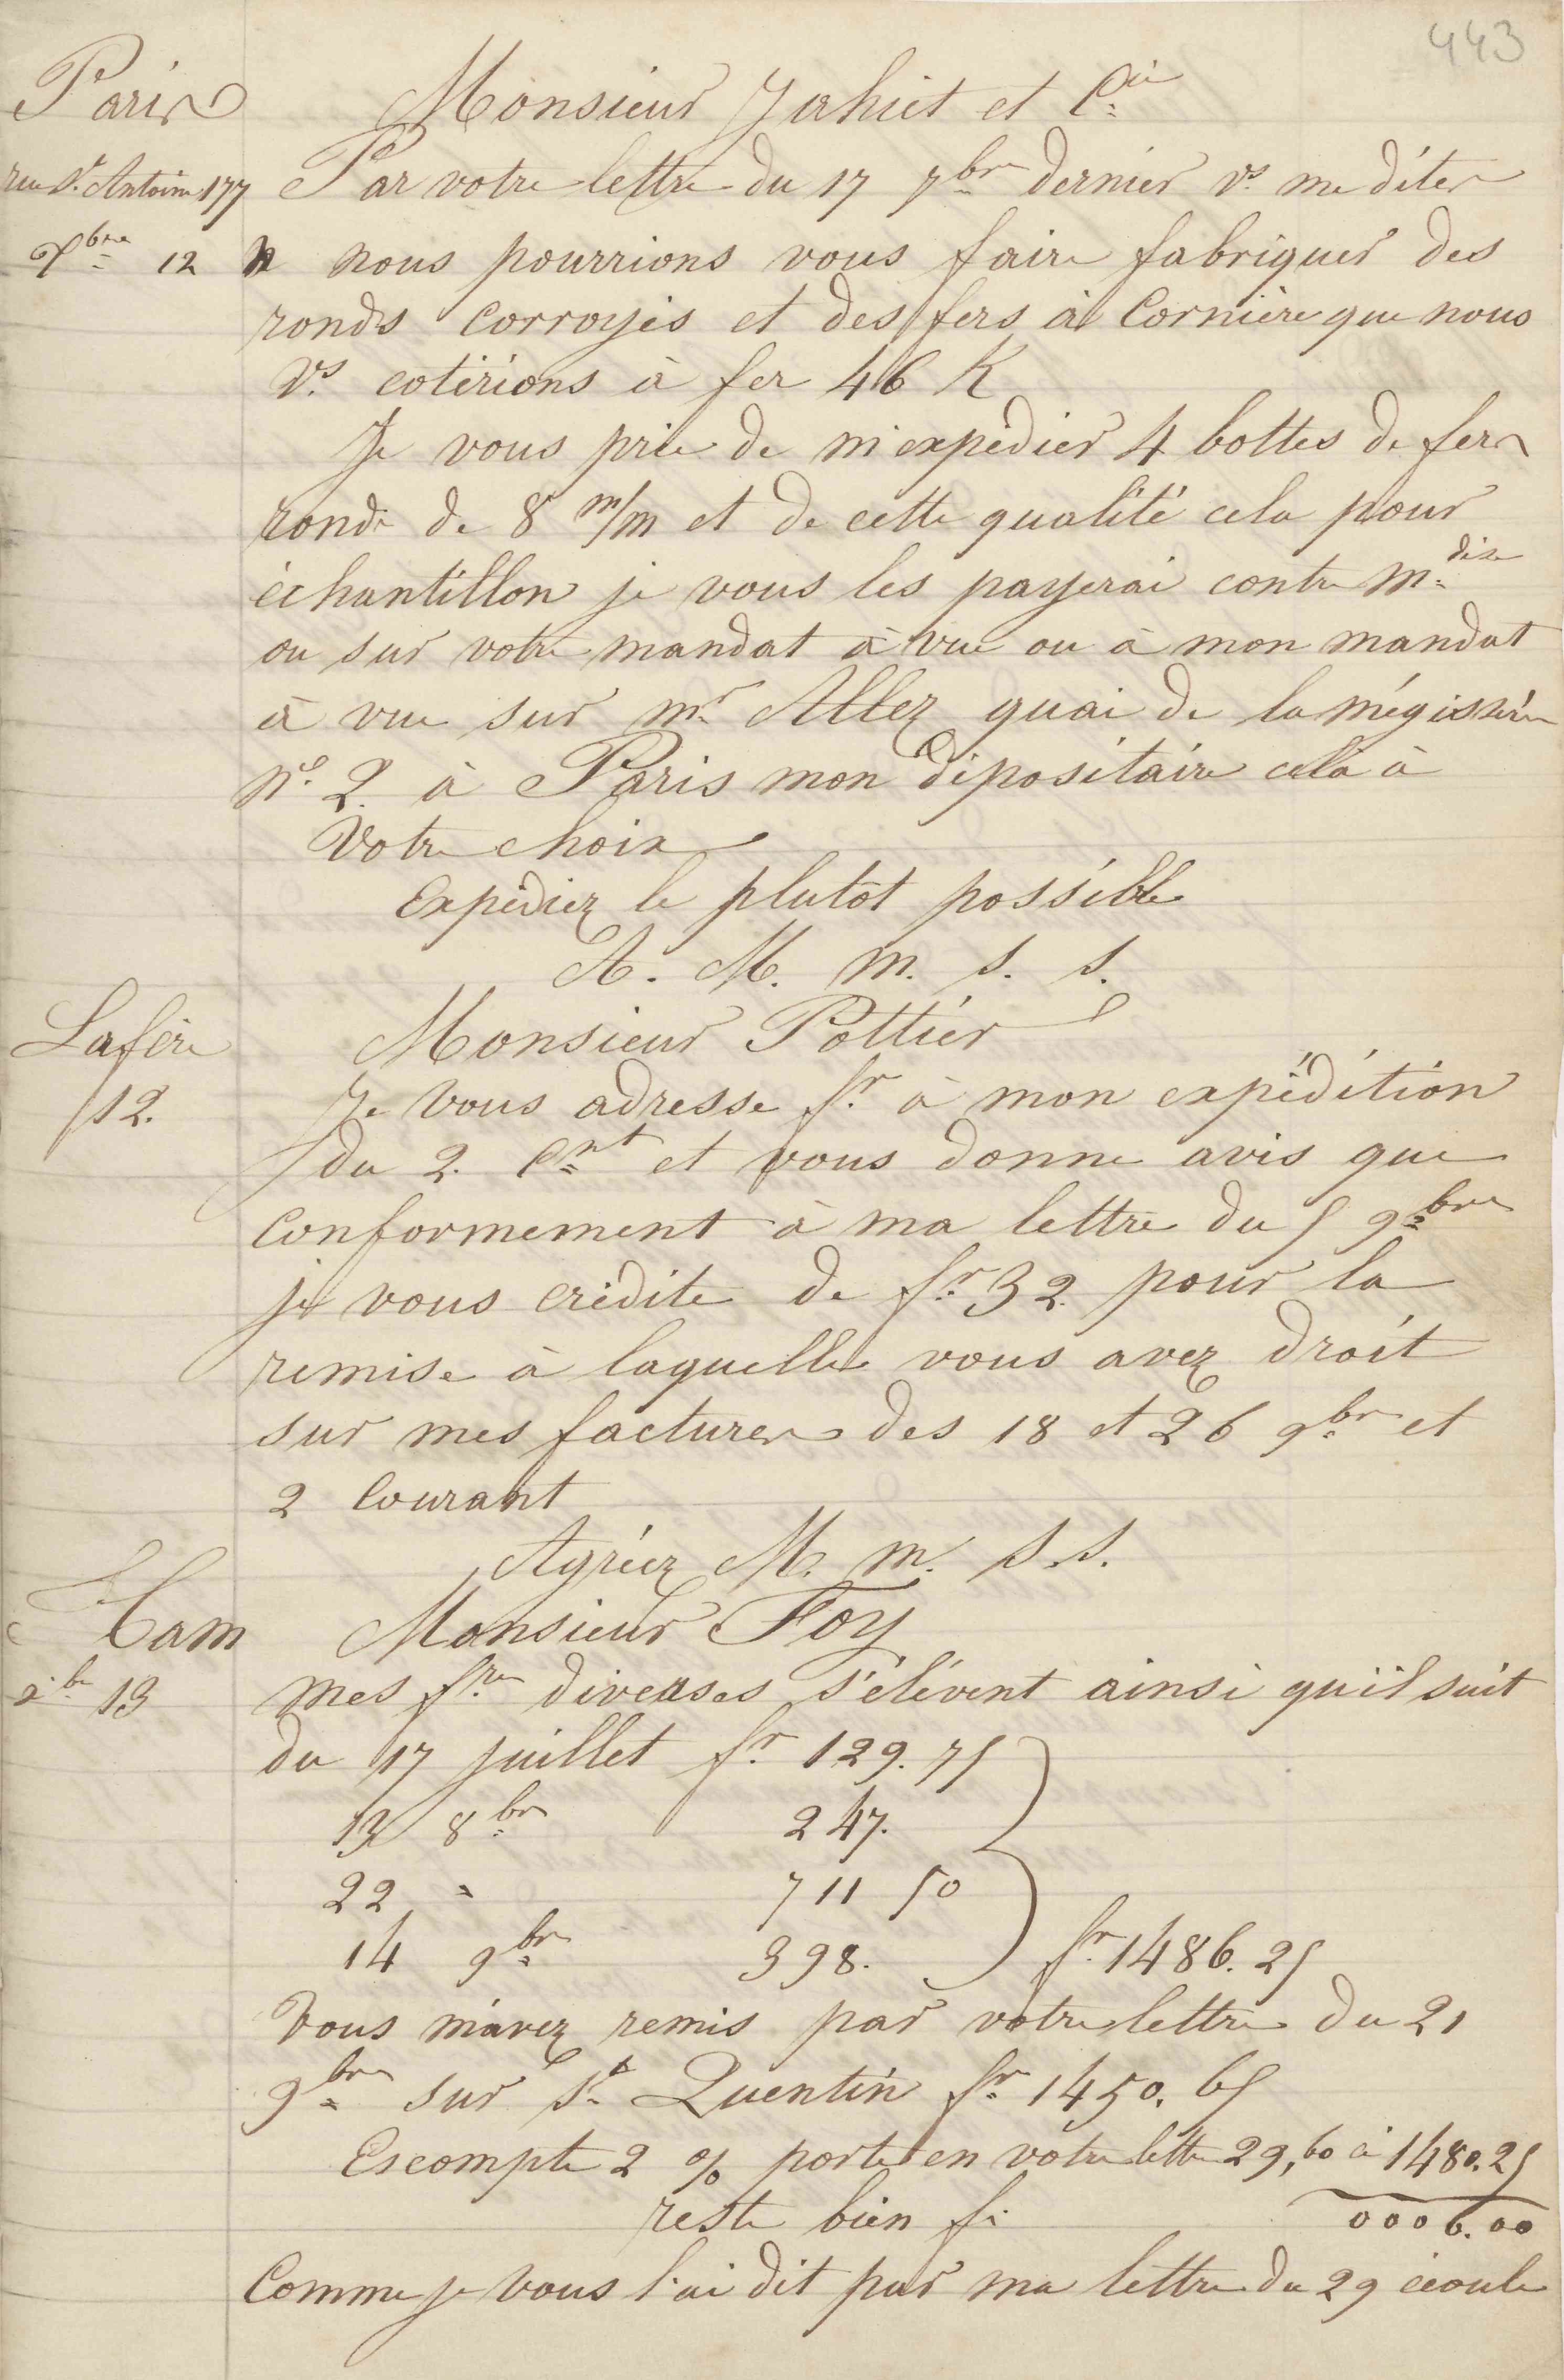 443
Paris
Monsieur Jahiet et Cie
rue St. Antoine 177
Par votre lettre du 17 7bre dernier vs. me dites
Xbre 12
nous pourrions vous faire fabriquer des
ronds corroyés et des fers à Cornière que nous
Vs. coterions à fer 46 K
Je vous prie de m'expédier 4 bottes de fer
rond de 8 m/m et de cette qualité cela pour
échantillon je vous les payerai contre Mdise
ou sur votre mandat à vue ou à mon mandat
à vue sur Mr Allez quai de la mégisserie
No. 2. à Paris mon dépositaire cela à
Votre choix
Expédiez le plutôt possible
A. M. m. s. s.
Lafère
Monsieur Pottier
12.
Je vous adresse fre à mon expédition
du 2. Cnt et vous donne avis que
conformement à ma lettre du 5 9bre
je vous crédite de fr. 32. pour la
remise à laquelle vous avez droit
sur mes factures des 18 et 26 9bre et
2 Courant
Agréez M. m. s. s.
Ham
Monsieur Foy
Xbre 13
mes fres diverses s'élèvent ainsi qu'il suit
du 17 juillet fr. 129.75
13 8bre 247.
22 " 711 50
14 9bre 398. fr. 1486.25
Vous m'avez remis par votre lettre du 21
9bre sur St Quentin fr. 1450.65
Escompte 2 % porté en votre lettre 29,60 à 1480.25
reste bien fr. 0006.00
Comme je vous l'ai dit par ma lettre du 29 écoulé